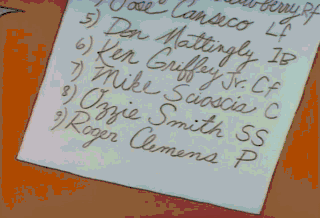 Jose Canseco Lf
5) Don Mattingly 1B
6) Ken Griffey Jr. Cf
7) Mike Scioscia C
8) Ozzie Smith SS
9) Roger Clemens P